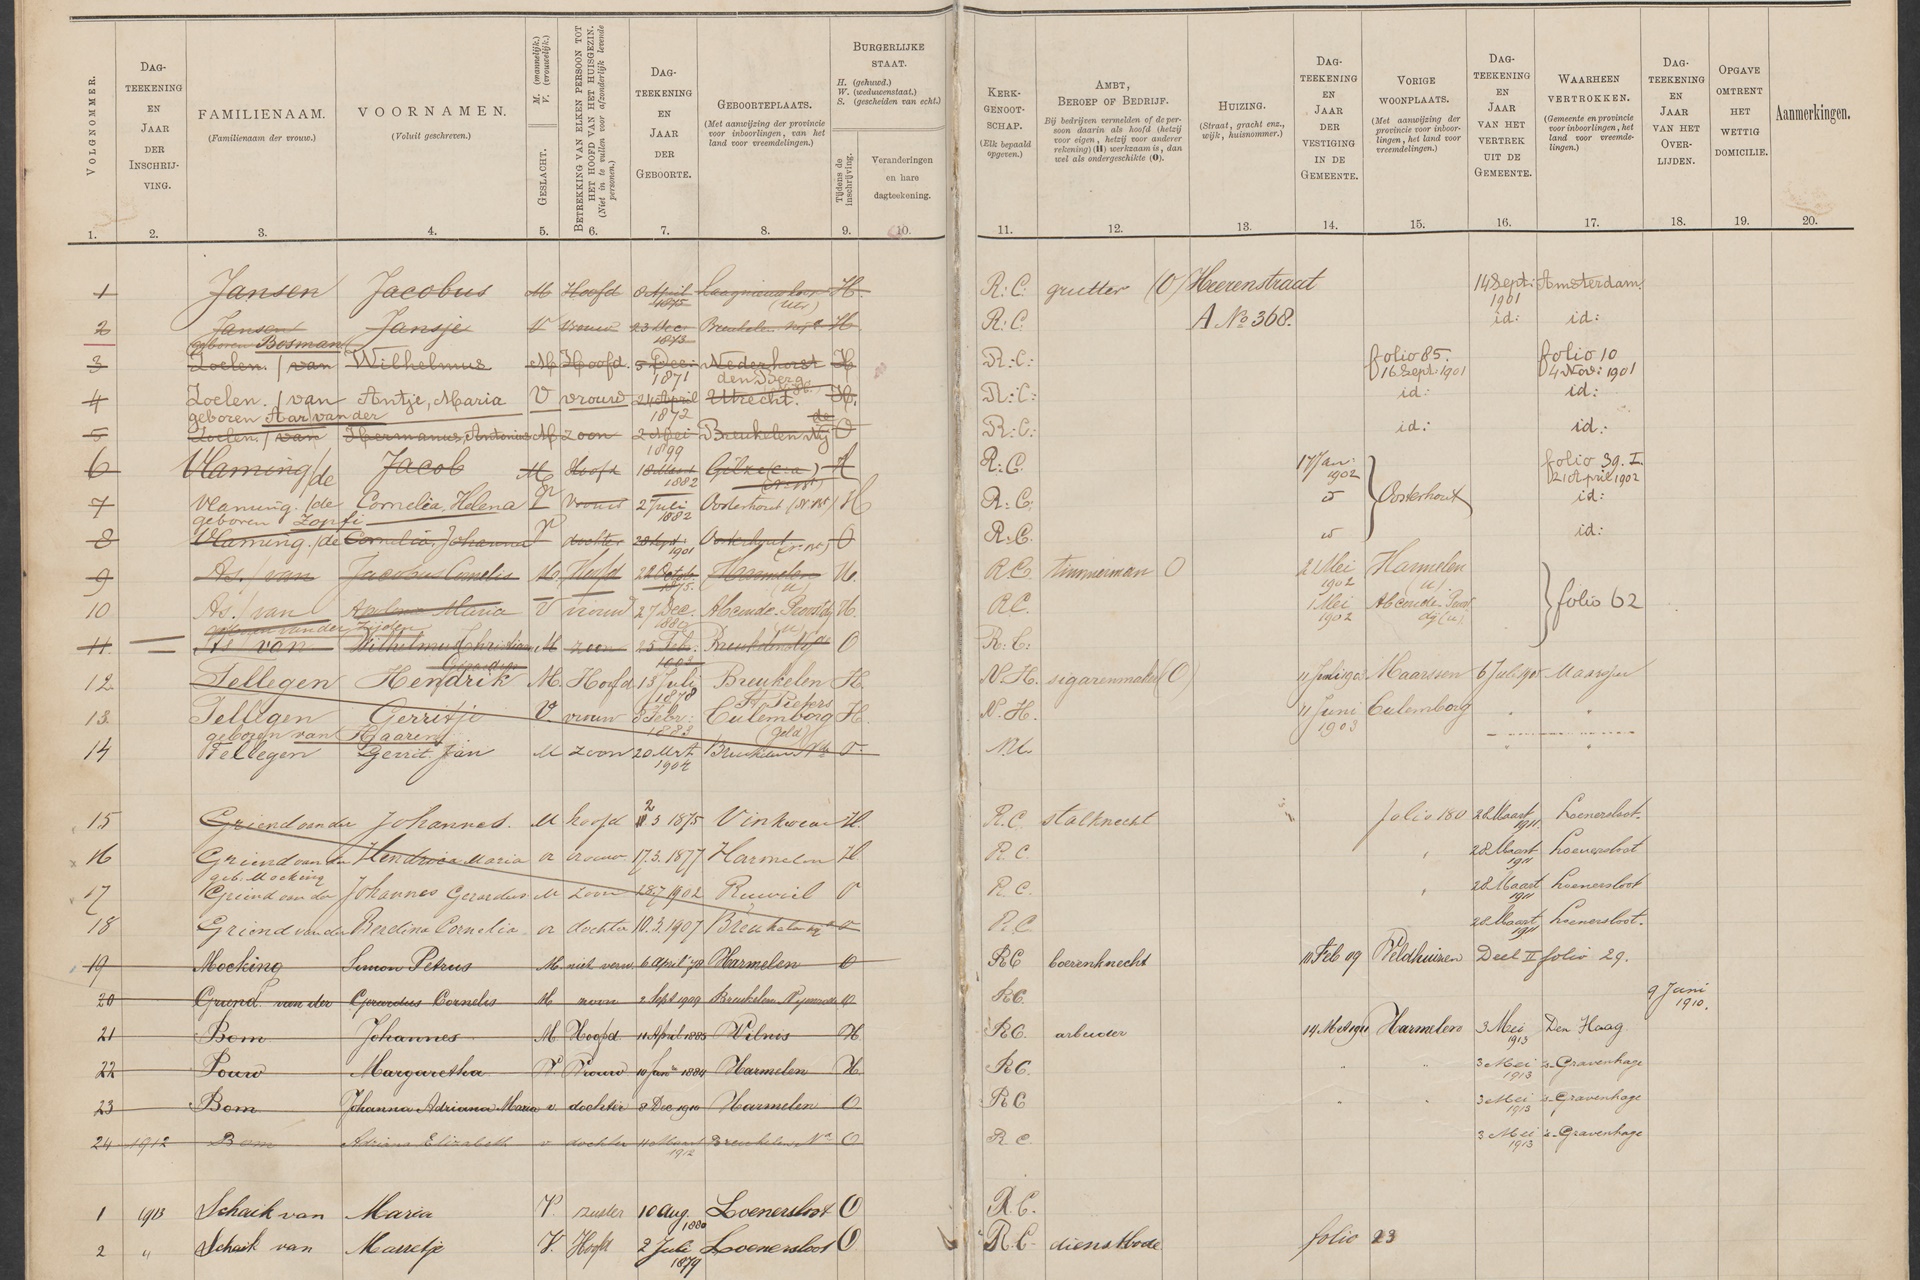 VOLGNOMMER.
DAG-TEEKENING EN JAAR DER INSCHRIJ-VING.
FAMILIENAAM.
(Familienaam der vrouw.)
VOORNAMEN.
(Voluit geschreven.)
GESLACHT. M. (mannelijk.) V. (vrouwelijk.)
BETREKKING VAN ELKEN PERSOON TOT HET HOOFD VAN HET HUISGEZIN.
(Niet in te vullen voor afzonderlijk levende personen.)
DAG-TEEKENING EN JAAR DER GEBOORTE.
GEBOORTEPLAATS.
(Met aanwijzing der provincie voor inboorlingen, van het land voor vreemdelingen.)
BURGERLIJKE STAAT.
H. (gehuwd.)
W. (weduwenstaat.)
S. (gescheiden van echt.)
Tijdens de inschrijving.
Veranderingen en hare dagteekening.
KERK-GENOOT-SCHAP.
(Elk bepaald opgeven.)
AMBT, BEROEP OF BEDRIJF.
Bij bedrijven vermelden of de persoon daarin als hoofd (hetzij voor eigen, hetzij voor anderer rekening) (H) werkzaam is, dan wel als ondergeschikte (O).
HUIZING.
(Straat, gracht enz., wijk, huisnummer.)
DAG-TEEKENING EN JAAR DER VESTIGING IN DE GEMEENTE.
VORIGE WOONPLAATS.
(Met aanwijzing der provincie voor inboorlingen, het land voor vreemdelingen.)
DAG-TEEKENING EN JAAR VAN HET VERTREK UIT DE GEMEENTE.
WAARHEEN VERTROKKEN.
(Gemeente en provincie voor inboorlingen, het land voor vreemdelingen.)
DAG-TEEKENING EN JAAR VAN HET OVER-LIJDEN.
OPGAVE OMTRENT HET WETTIG DOMICILIE.
Aanmerkingen.
1. 2. 3. 4. 5. 6. 7. 8. 9. 10. 11. 12. 13. 14. 15. 16. 17. 18. 19. 20.
1 Jansen Jacobus M Hoofd 8 April 1875 (Utr) H. R:C: grutter (O) Heerenstraat 14 Sept: 1901 Amsterdam
2 Jansen Jansje V vrouw 23 Dec 1873 Breukelen H R:C: A No 368. id: id:
geboren Bosman
3 Zoelen. / van Wilhelmus M Hoofd 5 Dec: 1871 Nederhorst den Berg H R:C: folio 85. 16 Sept: 1901 folio 10 4 Nov: 1901
4 Zoelen. / van Antje, Maria V vrouw 24 April 1872 Utrecht. H. R:C: id: id:
geboren Aar / van der
5 Zoelen. / van Hermanus, Antonius M zoon 2 Mei 1899 Breukelen Nij O R:C: id: id:
6 Vlaming / de Jacob M Hoofd 1882 H R:C. 17 Jan: 1902 folio 39. I. 21 April 1902
7 Vlaming. / de Cornelia, Helena V vrouw 2 Juli 1882 Oosterhout H R:C. Oosterhout id:
geboren Zopfi
8 Vlaming. / de Cornelia, Johanna V dochter 1901 Oosterhout O R:C. id:
9 As. / van Jacobus Cornelis M. Hoofd 22 Octob. 1875. Harmelen (U) H. R.C. timmerman O 2 Mei 1902 Harmelen (U)
10 As. / van Maria V vrouw 27 Dec. 1880 Abcoude. Proostdij (U) H. R.C. 1 Mei 1902 Abcoude. folio 62
11 As / van Wilhelmus Christiaan M zoon 25 Feb. 1903 Breukelen O R:C.
12. Tellegen Hendrik M. Hoofd 13 Juli 1878 Breukelen St. Pieters H. N.H. sigarenmaker (O) 11 Juni 190 Maarssen 6 Juli Maarssen
13. Tellegen Gerritje V. vrouw 3 Febr: 1883 Culemborg (geld) H. N.H. 11 Juni 1903 Culemborg
geboren van Haaren
14 Tellegen Gerrit Jan M zoon 20 Mrt. 1904 O N.H.
15. Griend van der Johannes. M hoofd 3 1875 Vinkeveen H. R.C. stalknecht folio 180 28 Maart 1911. Loenersloot.
16 Griend van der Hendrica Maria vr vrouw 17.3.1877 Harmelen H R.C. 28 Maart 1911 Loenersloot
geb. Mocking
17 Griend van der Johannes Gerardus M zoon 28.7.1902 Ruwiel O R.C. 28 Maart 1911 Loenersloot
18 Griend van der Berdina Cornelia vr dochter 10.3.1907 Breukelen O R.C. 28 Maart 1911 Loenersloot.
19 Mocking Simon Petrus M niet verw. 6 April Harmelen O RC boerenknecht 10 Feb 09 Veldhuizen Deel II folio 29.
20 Griend van der Gerardus Cornelis M zoon 2 Sept 1909 Breukelen Nijenrode O RC. 9 Juni 1910.
21 Bom Johannes M Hoofd 11 April 1885 Wilnis H RC. arbeider 14 Mei 1911 Harmelen 3 Mei 1913 Den Haag
22 Pouw Margaretha V. Vrouw 10 Jan 1884 Harmelen H. RC. 3 Mei 1913 's-Gravenhage
23 Bom Johanna Adriana Maria v. dochter 8 Dec 1910 Harmelen O. RC 3 Mei 1913 's-Gravenhage
24 1912 Bom Adriana Elizabeth v dochter 11 Maart 1912 Breukelen O RC. 3 Mei 1913 's-Gravenhage
1 1913 Schaik van Maria V. zuster 10 Aug. 1880 Loenersloot O R.C.
2 „ Schaik van Marretje V. Hoofd 2 Juli 1879 Loenersloot O R.C. dienstbode folio 23